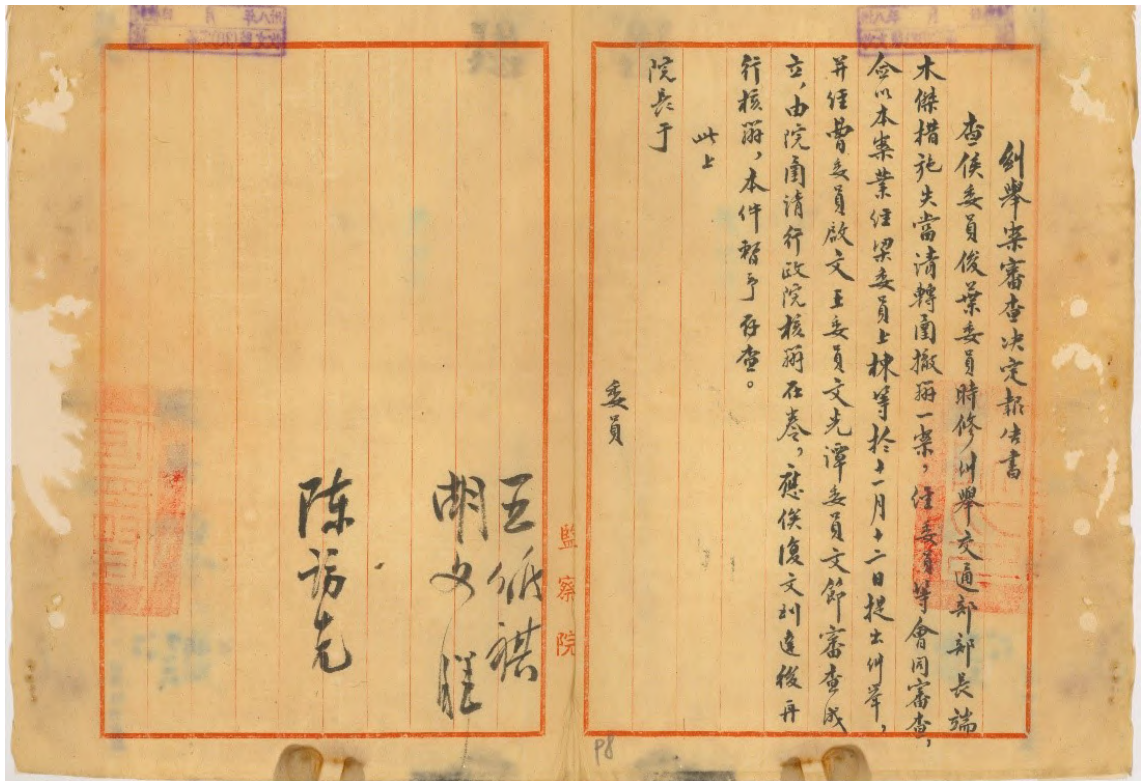 糾舉案審查決定報告書
查侯委員俊葉委員時修糾舉交通部部長端
木傑措施失當請轉函撤辦一案，經委員等會同審查，
僉以本案業經梁委員上棟等於十一月十二日提出糾舉，
并經曹委員啟文王委員文光譚委員文節審查成
立，由院函請行政院核辦在卷，應俟復文到達後再
行核辦，本件暫予存查。
此上
院長于
委員
監察院
王祺
胡文
陈訪先
P8